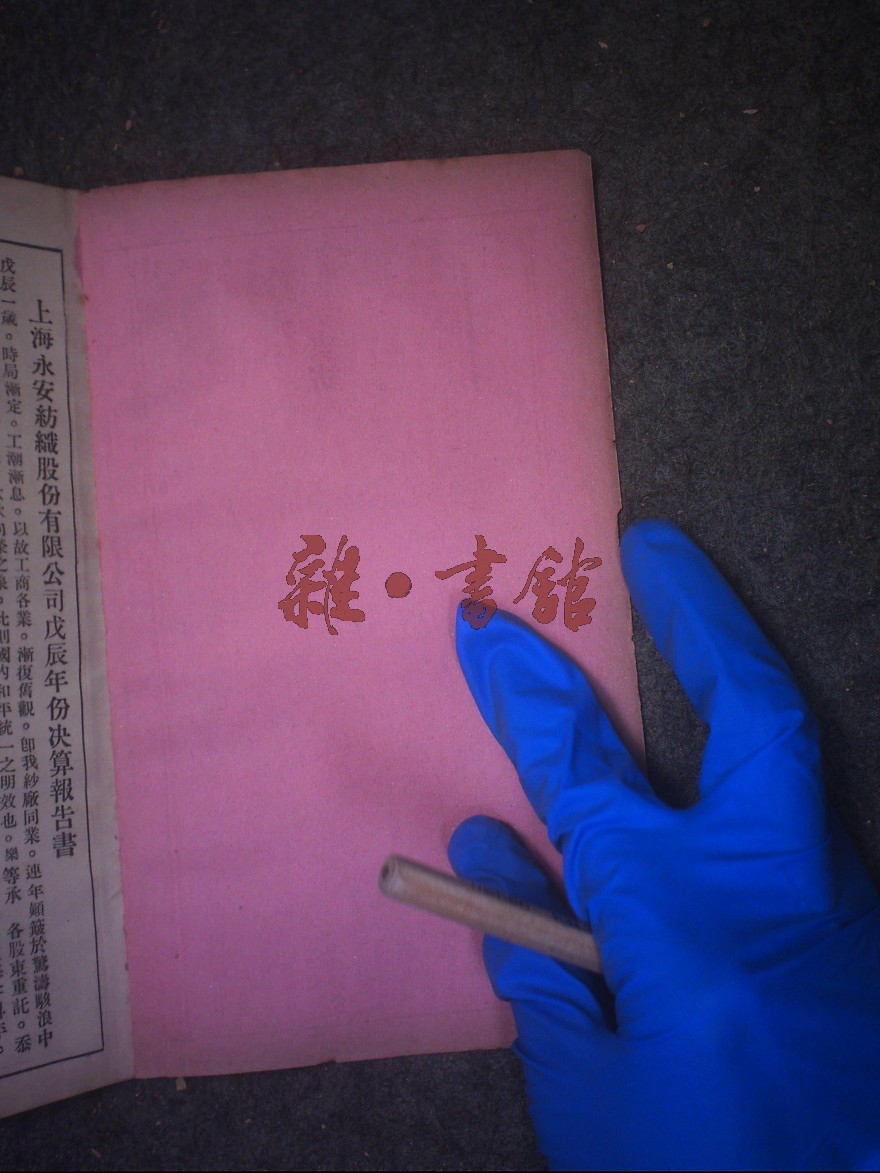 上海永安紡織股份有限公司戊辰年份決算報告書
戊辰一歲。時局漸定。工潮漸息。以故工商各業。漸復舊觀。卽我紗廠同業。連年顚簸於驚濤駭浪中
之象。此則國內和平統一之明效也。樂等承 各股東重託。忝
雜·書館